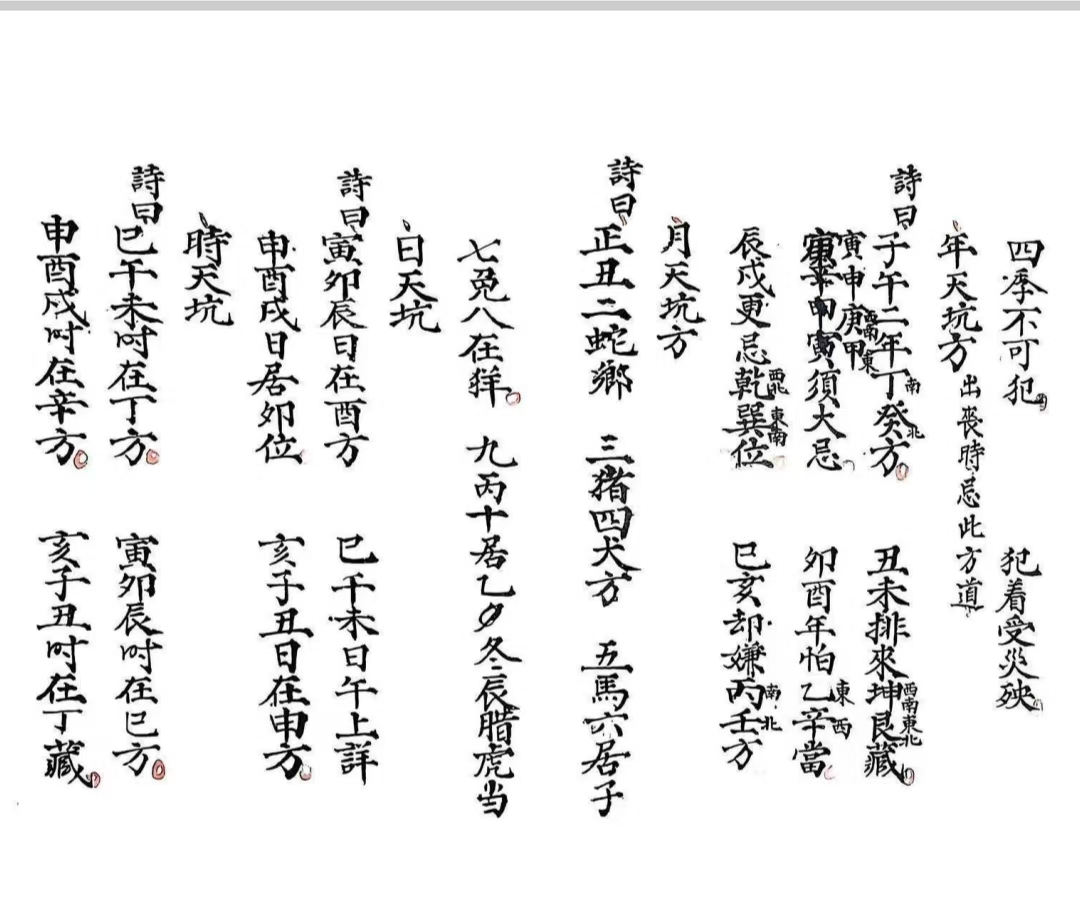 四季不可犯 犯着受災殃
年天坑方 出丧時忌此方道
詩曰 子午二年丁南癸北方 丑未排來坤西南艮東北藏
寅申庚西南甲東
寅申寅須大忌 卯酉年怕乙東辛西當
辰戌更忌乾西北巽東南位 巳亥却嫌丙南壬北方
月天坑方
詩曰 正丑二蛇鄉 三猪四犬方 五馬六居子
七兎八在羊 九丙十居乙 冬辰腊虎当
日天坑
詩曰 寅卯辰日在酉方 巳午未日午上詳
申酉戌日居卯位 亥子丑日在申方
時天坑
詩曰 巳午未时在丁方 寅卯辰时在巳方
申酉戌时在辛方 亥子丑时在丁藏